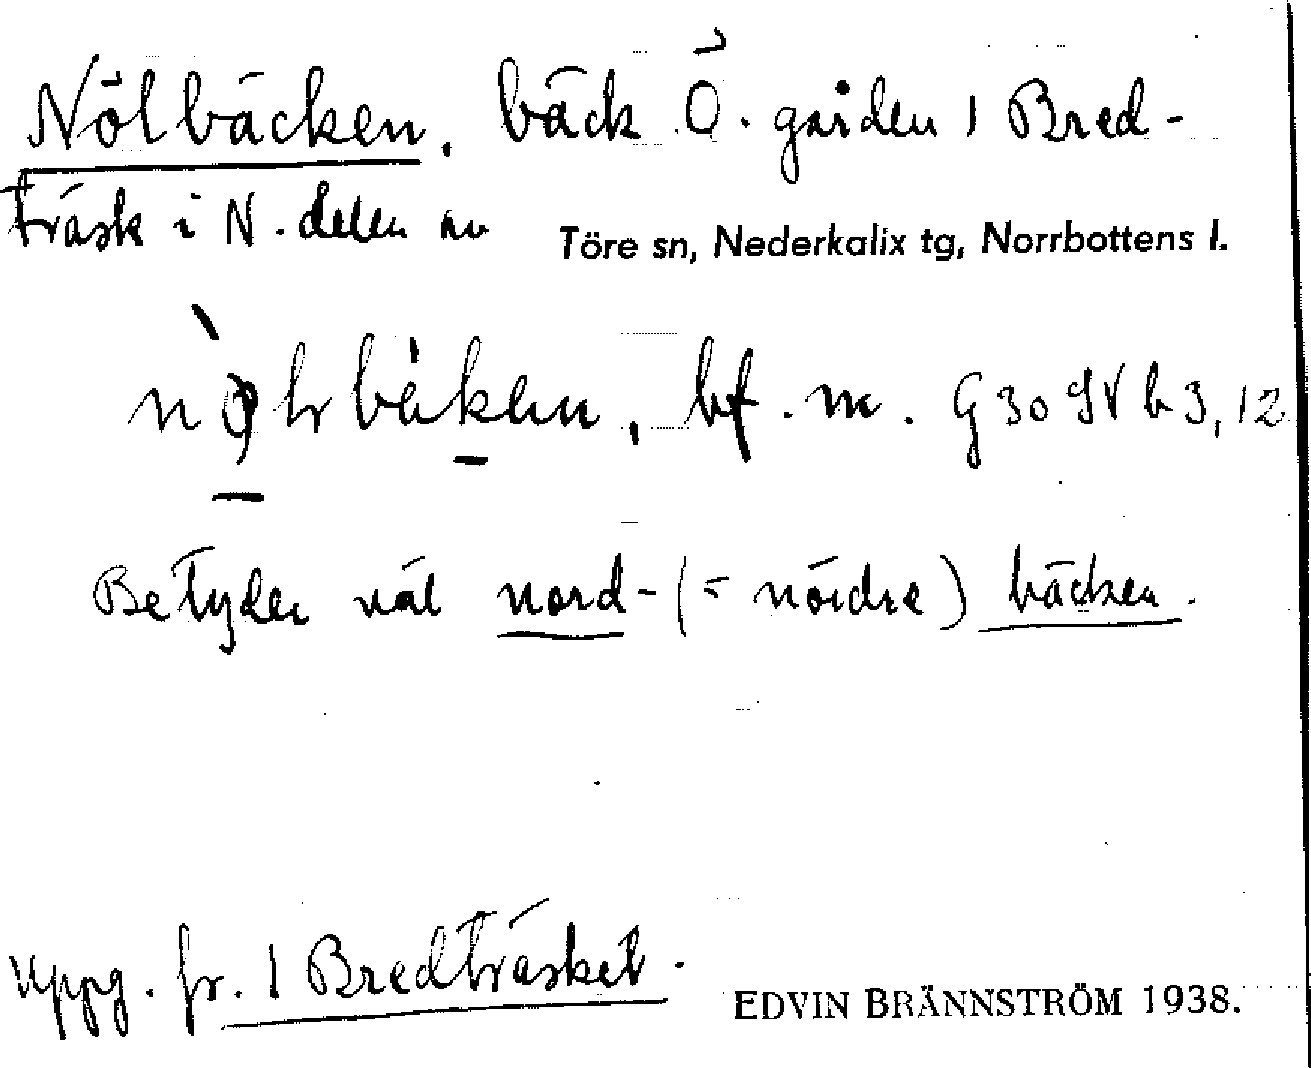 Nölbäcken, bäck Ö. gården 1 Bred-
träsk i N. delen av Töre sn, Nederkalix tg, Norrbottens l.
bf. m. G 30 SV h 3, 12
Betyder väl nord- (= nördre) bäcken.
uppg. fr. 1 Bredträsket.
EDVIN BRÄNNSTRÖM 1938.